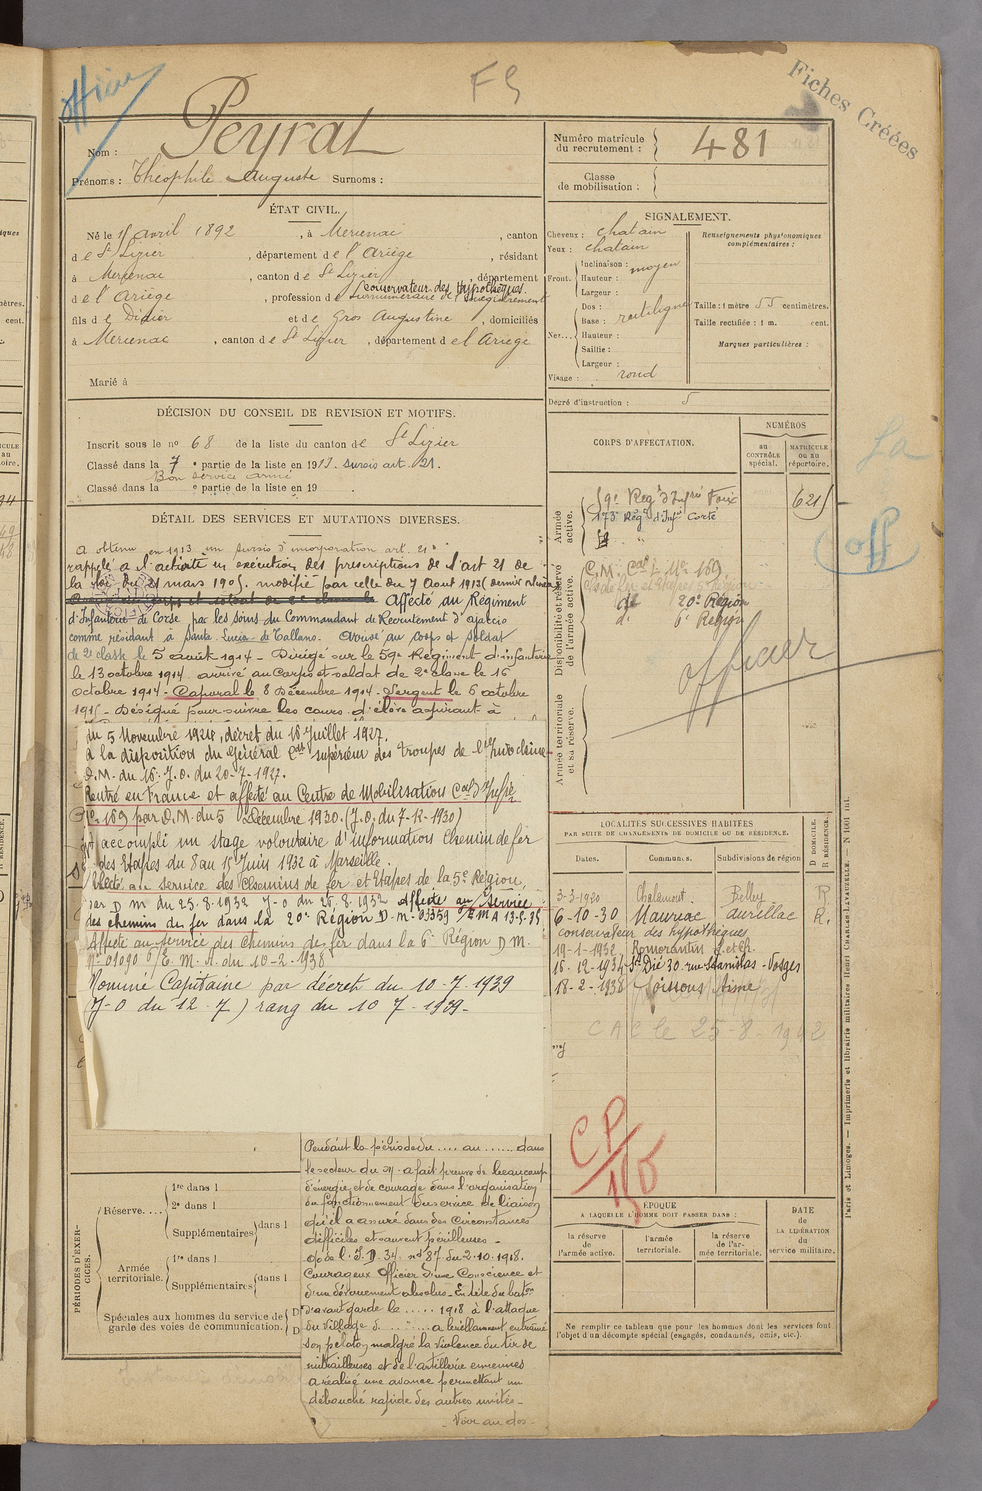 officier
F S
Fiches Créées
Nom : Peyrat
Prénoms : Théophile Auguste Surnoms :
Numéro matricule du recrutement : 481
Classe de mobilisation :
ÉTAT CIVIL.
Né le 15 avril 1892, à Mercenac, canton
de St Lizier, département de l'Ariège, résidant
à Mercenac, canton de St Lizier, département
conservateur des Hypothèques.
de l'Ariège, profession de Surnuméraire de l'Enregistrement
fils de Didier et de Gros Augustine, domiciliés
à Mercenac, canton de St Lizier, département de l'Ariège
Marié à
SIGNALEMENT.
Cheveux : chatain
Yeux : chatain
Front. Inclinaison : moyen
Hauteur :
Largeur :
Nez... Dos : rectiligne
Base :
Hauteur :
Saillie :
Largeur :
Visage : rond
Renseignements physionomiques complémentaires :
Taille : 1 mètre 55 centimètres.
Taille rectifiée : 1 m. cent.
Marques particulières :
Degré d'instruction : 5
DÉCISION DU CONSEIL DE REVISION ET MOTIFS.
Inscrit sous le no 68 de la liste du canton de St Lizier
Classé dans la 7e partie de la liste en 1913. sursis art. 21.
Bon service armé
Classé dans la e partie de la liste en 19 .
DÉTAIL DES SERVICES ET MUTATIONS DIVERSES.
A obtenu en 1913 un sursis d'incorporation art. 21
rappelé à l'activité en exécution des prescriptions de l'art 21 de
la loi du 21 mars 1905. modifié par celle du 7 Aout 1913 (dernier
Affecté au Régiment
d'Infanterie de Corse par les soins du Commandant de Recrutement d'Ajaccio
comme résidant à Santa Lucia di Tallano. Arrivé au corps et soldat
de 2e classe le 5 août 1914 - Dirigé sur le 59e Régiment d'infanterie
le 13 octobre 1914 arrivé au Corps et soldat de 2e classe le 16
octobre 1914 - Caporal le 8 Décembre 1914 - Sergent le 6 octobre
1915 - Désigné pour suivre les cours d'élève aspirant à
du 5 Novembre 1924, décret du 16 Juillet 1927.
A la disposition du Général Ct supérieur des Troupes de l'Indochine
D.M. du 16. J.O. du 20-7-1927.
Rentré en France et affecté au Centre de Mobilisation Cal d'Infie
No 169 par D.M. du 5 Décembre 1930. (J.O. du 7-12-1930)
A accompli un stage volontaire d'information Chemin de fer
des Etapes du 8 au 15 Juin 1932 à Marseille.
Affecté au service des Chemins de fer et Etapes de la 5e Région,
par D M du 25.8.1932 J-O du 28.8.1932 Affecté au Service
des chemins de fer dans la 20e Région D-M-03359 /EMA 13-5-35
Affecté au service des Chemins de fer dans la 6e Région D M.
No 01090 /E. M. A. du 10-2-1938
Nommé Capitaine par décret du 10-7-1939
(J-O du 12-7) rang du 10 7-1939-
Pendant la période du .... au ...... dans
le secteur du M. a fait preuve de beaucoup
d'énergie et de courage dans l'organisation
du fonctionnement du service de liaison
qu'il a assuré dans des circonstances
difficiles et souvent périlleuses -
O/. de l' I. D. 34. no 87 du 2.10.1918.
Courageux officier d'une Conscience et
d'un dévouement absolus - En tête du baton
d'avant garde le ..... 1918 à l'attaque
du Village d. ... a brillamment entrainé
son peloton malgré la violence du tir de
mitrailleuses et de l'artillerie ennemies
a réalisé une avance permettant un
débouché rapide des autres unités -
- Voir au dos -
CORPS D'AFFECTATION.
NUMÉROS
au CONTRÔLE spécial.
MATRICULE ou au répertoire.
Armée active.
59e Régt d'Infie Foix 6215
173e Régt d'Infie Corte
Disponibilité et réserve de l'armée active.
C.M. Cal I. No 169
de fer et Etapes 5e Région
do 20e Région
d. 6e Région
officier
Armée territoriale et sa réserve.
LOCALITÉS SUCCESSIVES HABITÉES
PAR SUITE DE CHANGEMENTS DE DOMICILE OU DE RÉSIDENCE.
Dates. Communes. Subdivisions de région D DOMICILE. R RÉSIDENCE.
3-3-1920 Chalamont. Belley R
6-10-30 Mauriac Aurillac R.
conservateur des hypothèques
19-1-1932 Romorantin L. et Ch.
16-12-1934 St Dié 30 rue Stanislas - Vosges
18-2-1938 Soissons Aisne
C A C le 25-8-1942
CP/
ÉPOQUE
A LAQUELLE L'HOMME DOIT PASSER DANS :
la réserve de l'armée active.
l'armée territoriale.
la réserve de l'armée territoriale.
DATE DE LA LIBÉRATION du service militaire.
Ne remplir ce tableau que pour les hommes dont les services font
l'objet d'un décompte spécial (engagés, condamnés, omis, etc.).
PÉRIODES D'EXERCICES.
Réserve....
1re dans l
2e dans l
Supplémentaires dans l
Armée territoriale.
1re dans l
Supplémentaires dans l
Spéciales aux hommes du service de
garde des voies de communication.
D
D
Paris et Limoges. — Imprimerie et librairie militaires Henri CHARLES-LAVAUZELLE. — N 1001 int.